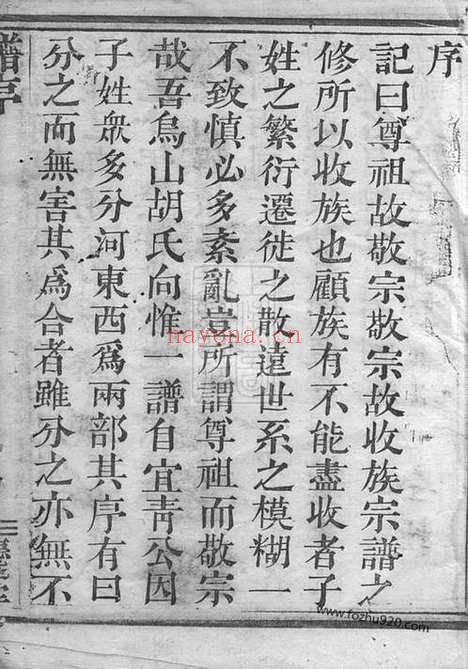 序
記曰尊祖故敬宗敬宗故收族宗譜之
修所以收族也顧族有不能盡收者子
姓之繁衍遷徙之散遠世系之模糊一
不致慎必多紊亂豈所謂尊祖而敬宗
哉吾烏山胡氏向惟一譜自宜靑公因
子姓衆多分河東西爲兩部其序有曰
分之而無害其爲合者雖分之亦無不
譜序
hayona.cn
www.fozhu920.com